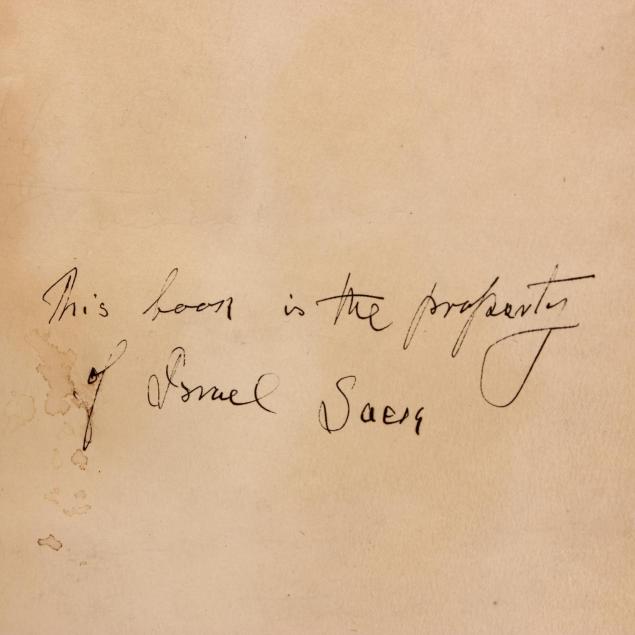 This book is the property
of Israel